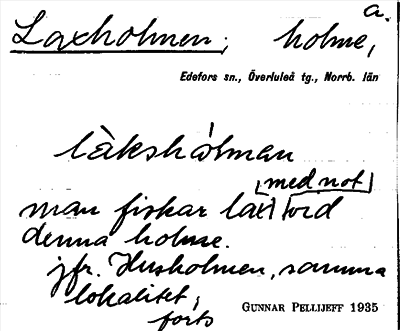 a.
Laxholmen; holme,
Edefors sn., Överluleå tg., Norrb. län
làkshólman
[med not]
man fiskar lax vid
denna holme.
jfr. Husholmen, samma
lokalitet;
forts
GUNNAR PELLIJEFF 1935